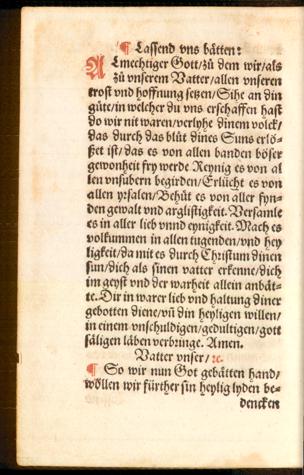 ¶ Lassend vns bätten:
ALmechtiger Gott/zů dem wir/als
zů vnserem Vatter/allen vnseren
trost vnd hoffnung setzen/Sihe an din
güte/in welcher du vns erschaffen hast
do wir nit waren/verlyhe dinem volck/
das durch das blůt dines Suns erlö-
ßet ist/das es von allen banden böser
gewonheit fry werde Reynig es von al
len vnsubern begirden/Erlücht es von
allen yrsalen/Behüt es von aller syn-
den gewalt vnd arglistigkeit. Versamle
es in aller lieb vnnd eynigkeit. Mach es
volkummen in allen tugenden/vnd hey
ligkeit/da mit es durch Christum dinen
sun/dich als sinen vatter erkenne/dich
im geyst vnd der warheit allein anbät-
te. Dir in warer lieb vnd haltung diner
gebotten diene/vñ din heyligen willen/
in einem vnschuldigen/gedultigen/gott
säligen läben verbringe. Amen.
Vatter vnser/ ꝛc.
¶ So wir nun Got gebätten hand/
wöllen wir fürther sin heylig lyden be-
dencken